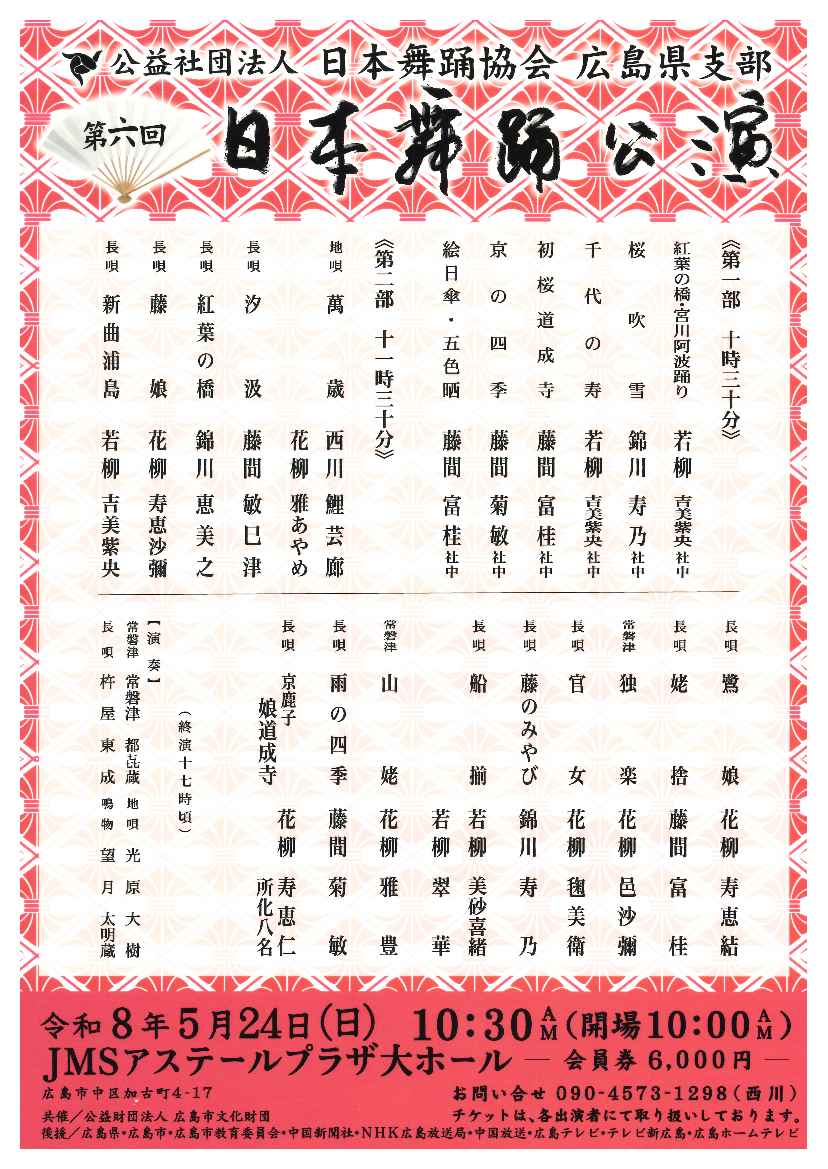 公益社団法人 日本舞踊協会 広島県支部
第六回
日本舞踊公演
《第一部 十時三十分》
紅葉の橋・宮川阿波踊り 若柳 吉美紫央社中
桜吹雪 錦川 寿乃社中
千代の寿 若柳 吉美紫央社中
初桜道成寺 藤間 富桂社中
京の四季 藤間 菊敏社中
絵日傘・五色晒 藤間 富桂社中
《第二部 十一時三十分》
地唄 萬歳 西川 鯉芸廊
花柳 雅あやめ
長唄 汐汲 藤間 敏巳津
長唄 紅葉の橋 錦川 恵美之
長唄 藤娘 花柳 寿恵沙彌
長唄 新曲浦島 若柳 吉美紫央
長唄 鷺娘 花柳 寿恵結
長唄 姥捨 藤間 富桂
常磐津 独楽 花柳 邑沙彌
長唄 官女 花柳 毱美衛
長唄 藤のみやび 錦川 寿乃
長唄 船揃 若柳 美砂喜緒
若柳 翠華
常磐津 山姥 花柳 雅豊
長唄 雨の四季 藤間 菊敏
長唄 京鹿子 花柳 寿恵仁
娘道成寺 所化八名
（終演十七時頃）
【演奏】
常磐津 常磐津 都㐂蔵 地唄 光原大樹
長唄 杵屋東成 鳴物 望月 太明蔵
令和8年5月24日(日) 10:30AM(開場10:00AM)
JMSアステールプラザ大ホール ― 会員券 6,000円 ―
広島市中区加古町4-17
お問い合せ 090-4573-1298(西川)
共催／公益財団法人 広島市文化財団
チケットは、各出演者にて取り扱いしております。
後援／広島県・広島市・広島市教育委員会・中国新聞社・NHK広島放送局・中国放送・広島テレビ・テレビ新広島・広島ホームテレビ